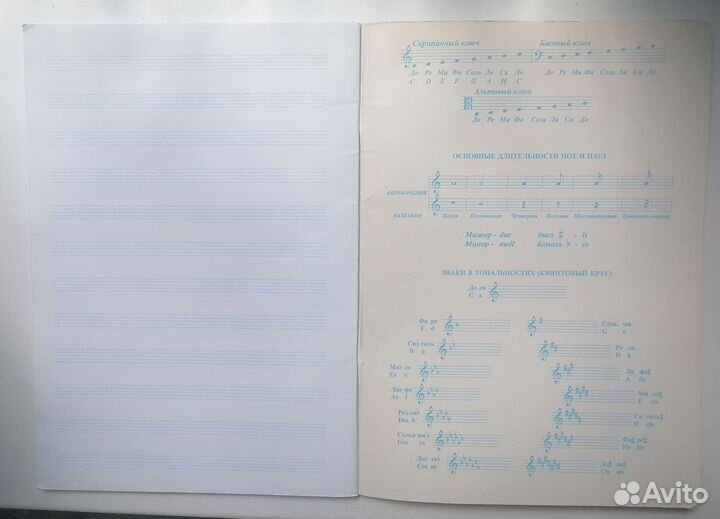 Скрипичный ключ Басовый ключ
До Ре Ми Фа Соль Ля Си До До Ре Ми Фа Соль Ля Си До
C D E F G A H C
Альтовый ключ
До Ре Ми Фа Соль Ля Си До
ОСНОВНЫЕ ДЛИТЕЛЬНОСТИ НОТ И ПАУЗ
ОБОЗНАЧЕНИЯ
НАЗВАНИЯ Целая Половинная Четверть Восьмая Шестнадцатая Тридцать вторая
Мажор - dur диез ♯ - is
Минор - moll бемоль ♭ - es
ЗНАКИ В ТОНАЛЬНОСТЯХ (КВИНТОВЫЙ КРУГ)
До ля
C a
Фа ре Соль ми
F d G e
Си♭ соль Ре си
B g D h
Ми♭ до Ля фа♯
Es c A fis
Ля♭ фа Ми до♯
As f E cis
Ре♭ си♭ Си соль♯
Des b H gis
Соль♭ ми♭ Фа♯ ре♯
Ges es Fis dis
До♭ ля♭ До♯ ля♯
Ces as Cis ais
Avito